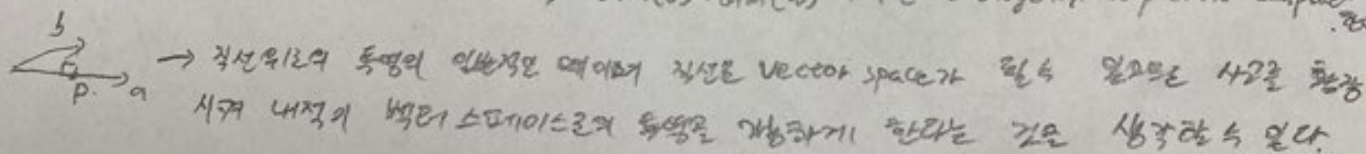 b
→ 직선위로의 투영의 일반적인 예이며 직선은 vector space가 될 수 있으므로 사고를 확장
p. a
시켜 내적이 벡터 스페이스로의 투영을 가능하게 한다는 것을 생각할 수 있다.